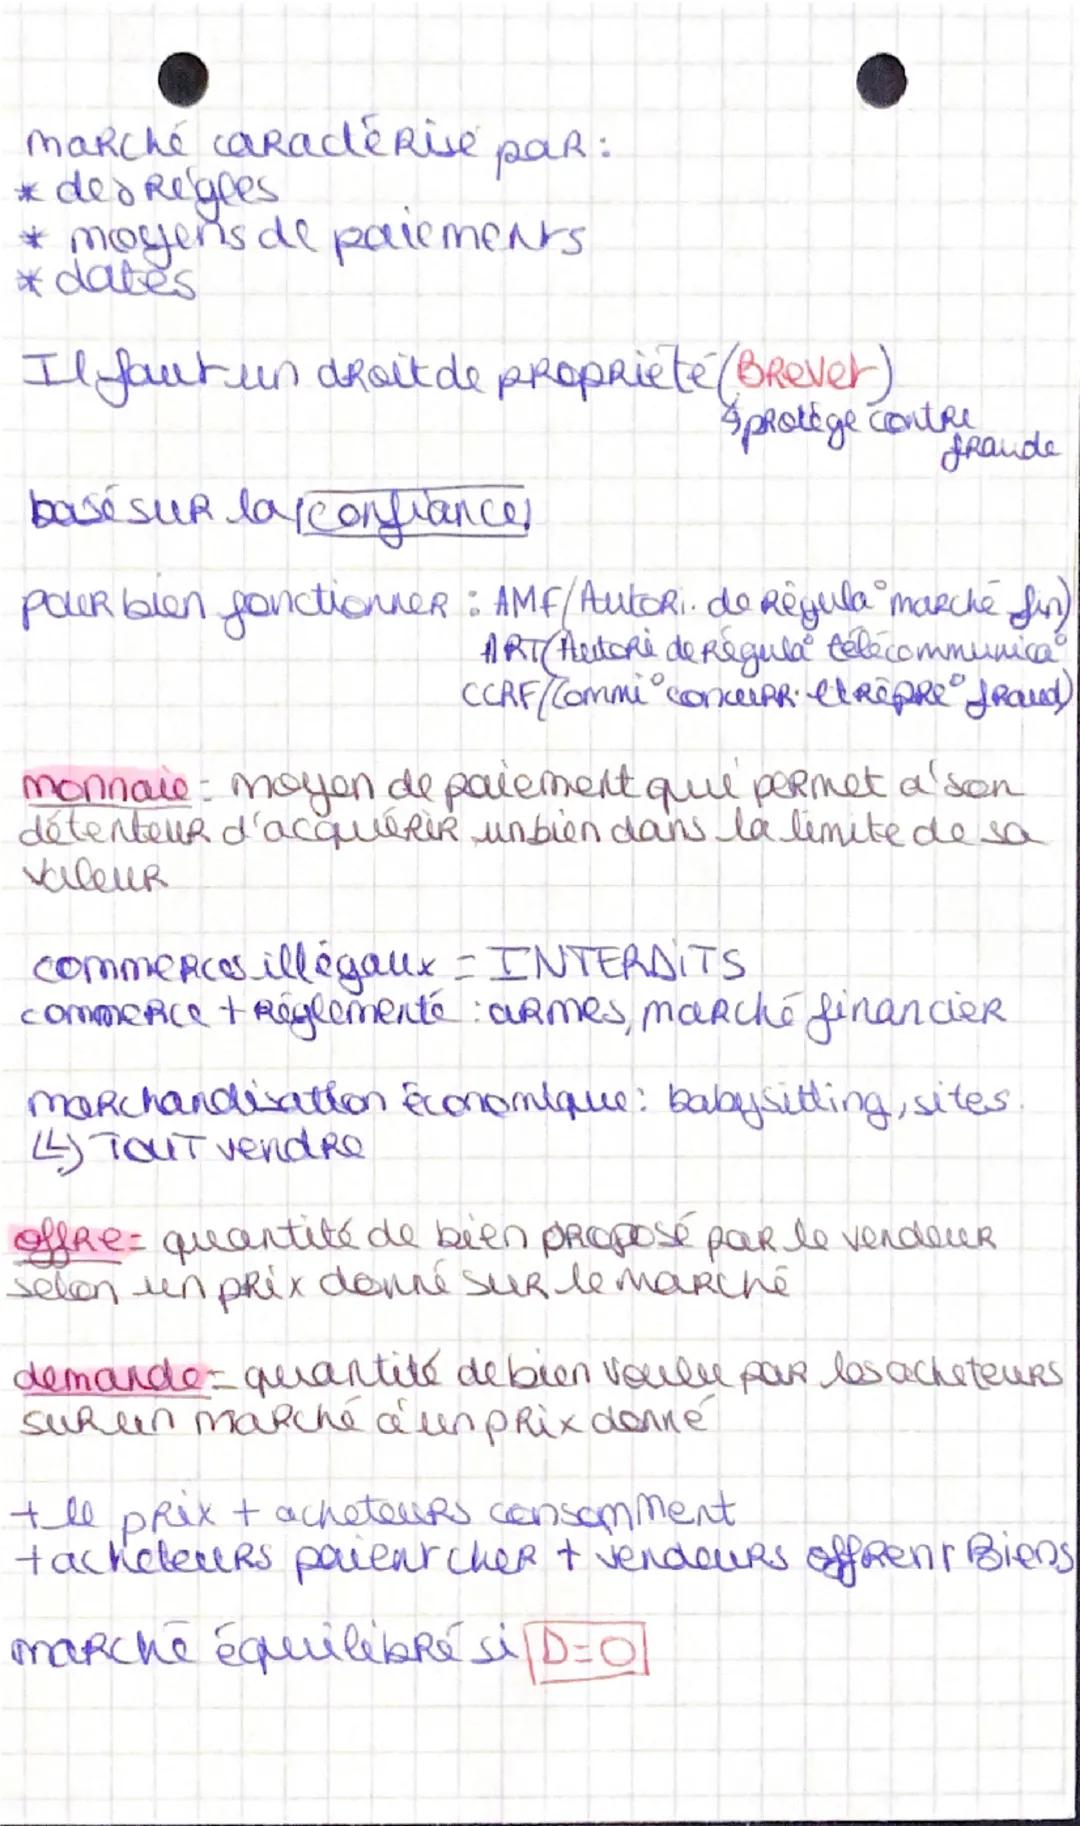 marché caractérisé par :
* des règles
* moyens de paiements
* dates
Il faut un droit de propriété (Brevet)
↳ protège contre
fraude
basé sur la confiance
pour bien fonctionner : AMF (Autori. de régula° marché fin)
ART (Autori de régula° télécommunica°
CCRF (Commi° concurr. et répre° fraud)
monnaie = moyen de paiement qui permet à son
détenteur d'acquérir un bien dans la limite de sa
valeur
commerces illégaux = INTERDITS
commerce + réglementé : armes, marché financier
marchandisation économique : babysitting, sites.
(↳) TOUT vendre
offre = quantité de bien proposé par le vendeur
selon un prix donné sur le marché
demande = quantité de bien voulu par les acheteurs
sur un marché à un prix donné
+ le prix + acheteurs consomment
+ acheteurs paient cher + vendeurs offrent Biens
marché équilibré si D=O